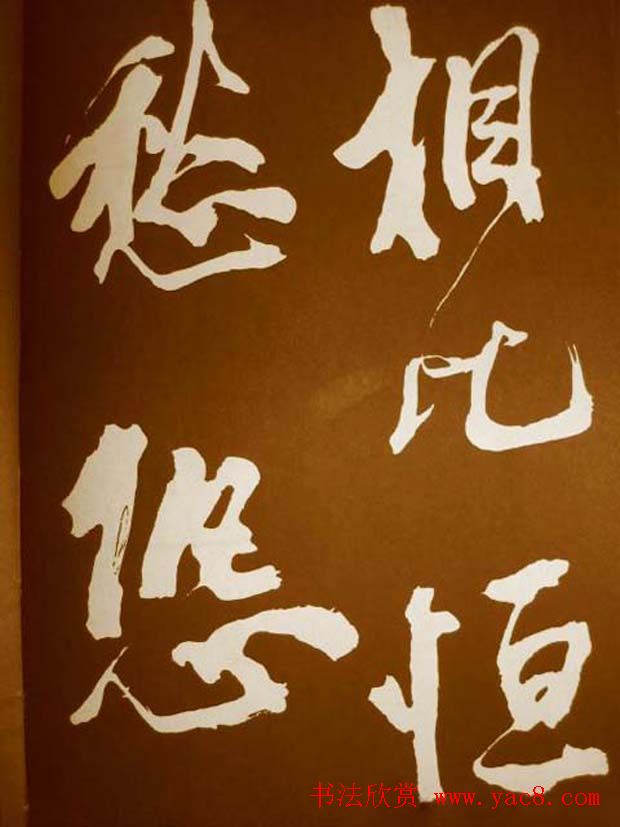 相比恒
愁
书法欣赏 www.yac8.com